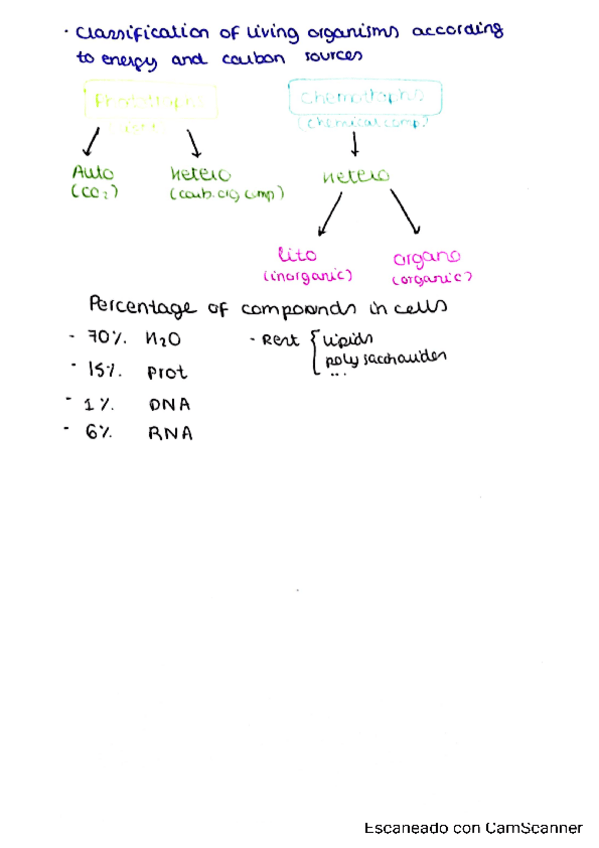 · Classification of living organisms according
to energy and carbon sources
Phototrophs Chemotrophs
(chemical comp)
Auto hetero hetero
(CO2) (carb. org. comp)
lito organo
(inorganic) (organic)
Percentage of compounds in cells
- 70%. H2O - Rest { lipids
polysaccharides
...
- 15%. Prot
- 1%. DNA
- 6%. RNA
Escaneado con CamScanner